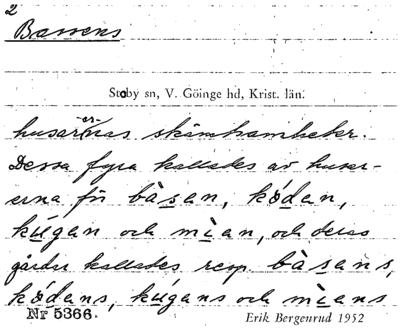 2
Bassens
Stoby sn, V. Göinge hd, Krist. län.
husarernas skämtsamheter.
Dessa fyra kallades av husar-
erna för bàsan, kódan,
kúgan och mìan, och deras
gårdar kallades resp. bàsans,
kódans, kúgans och mìans
Nr 5366.
Erik Bergenrud 1952